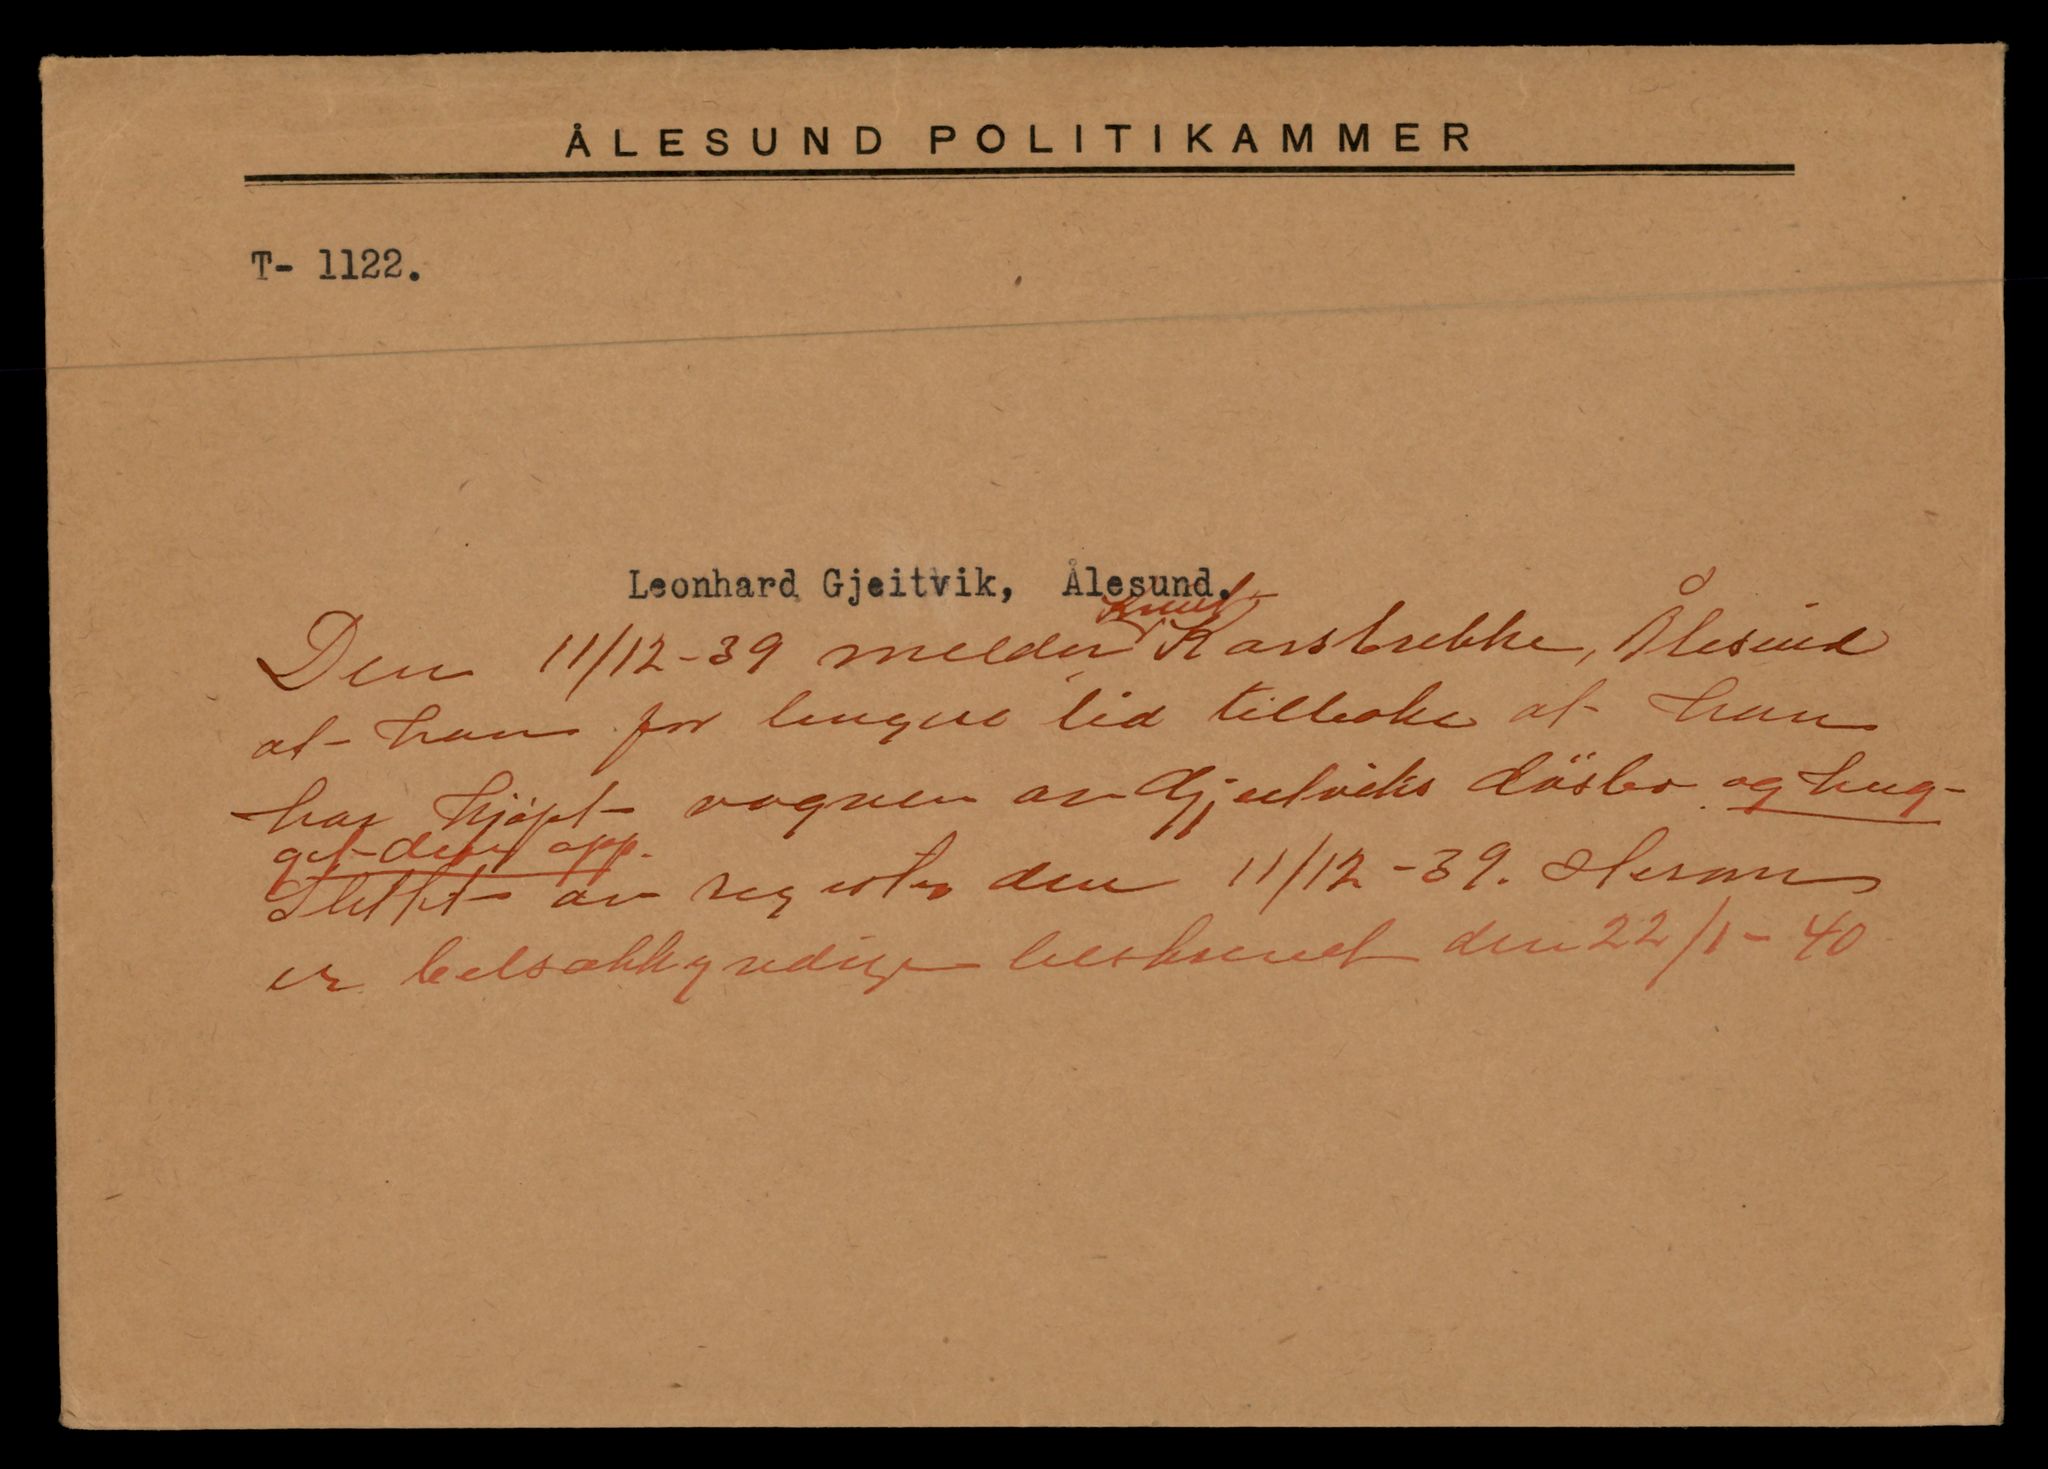 ÅLESUND POLITIKAMMER
T- 1122.
Leonhard Gjeitvik, Ålesund.
Knut
Den 11/12-39 melder Karstrekke, Ålesund
at han for lengre tid tilbake at han
har kjøpt vognen av Gjeitviks dösbo og hug-
get den opp.
Slettet av register den 11/12-39. Herom
er bilsakkyndige beskrevet den 22/1-40